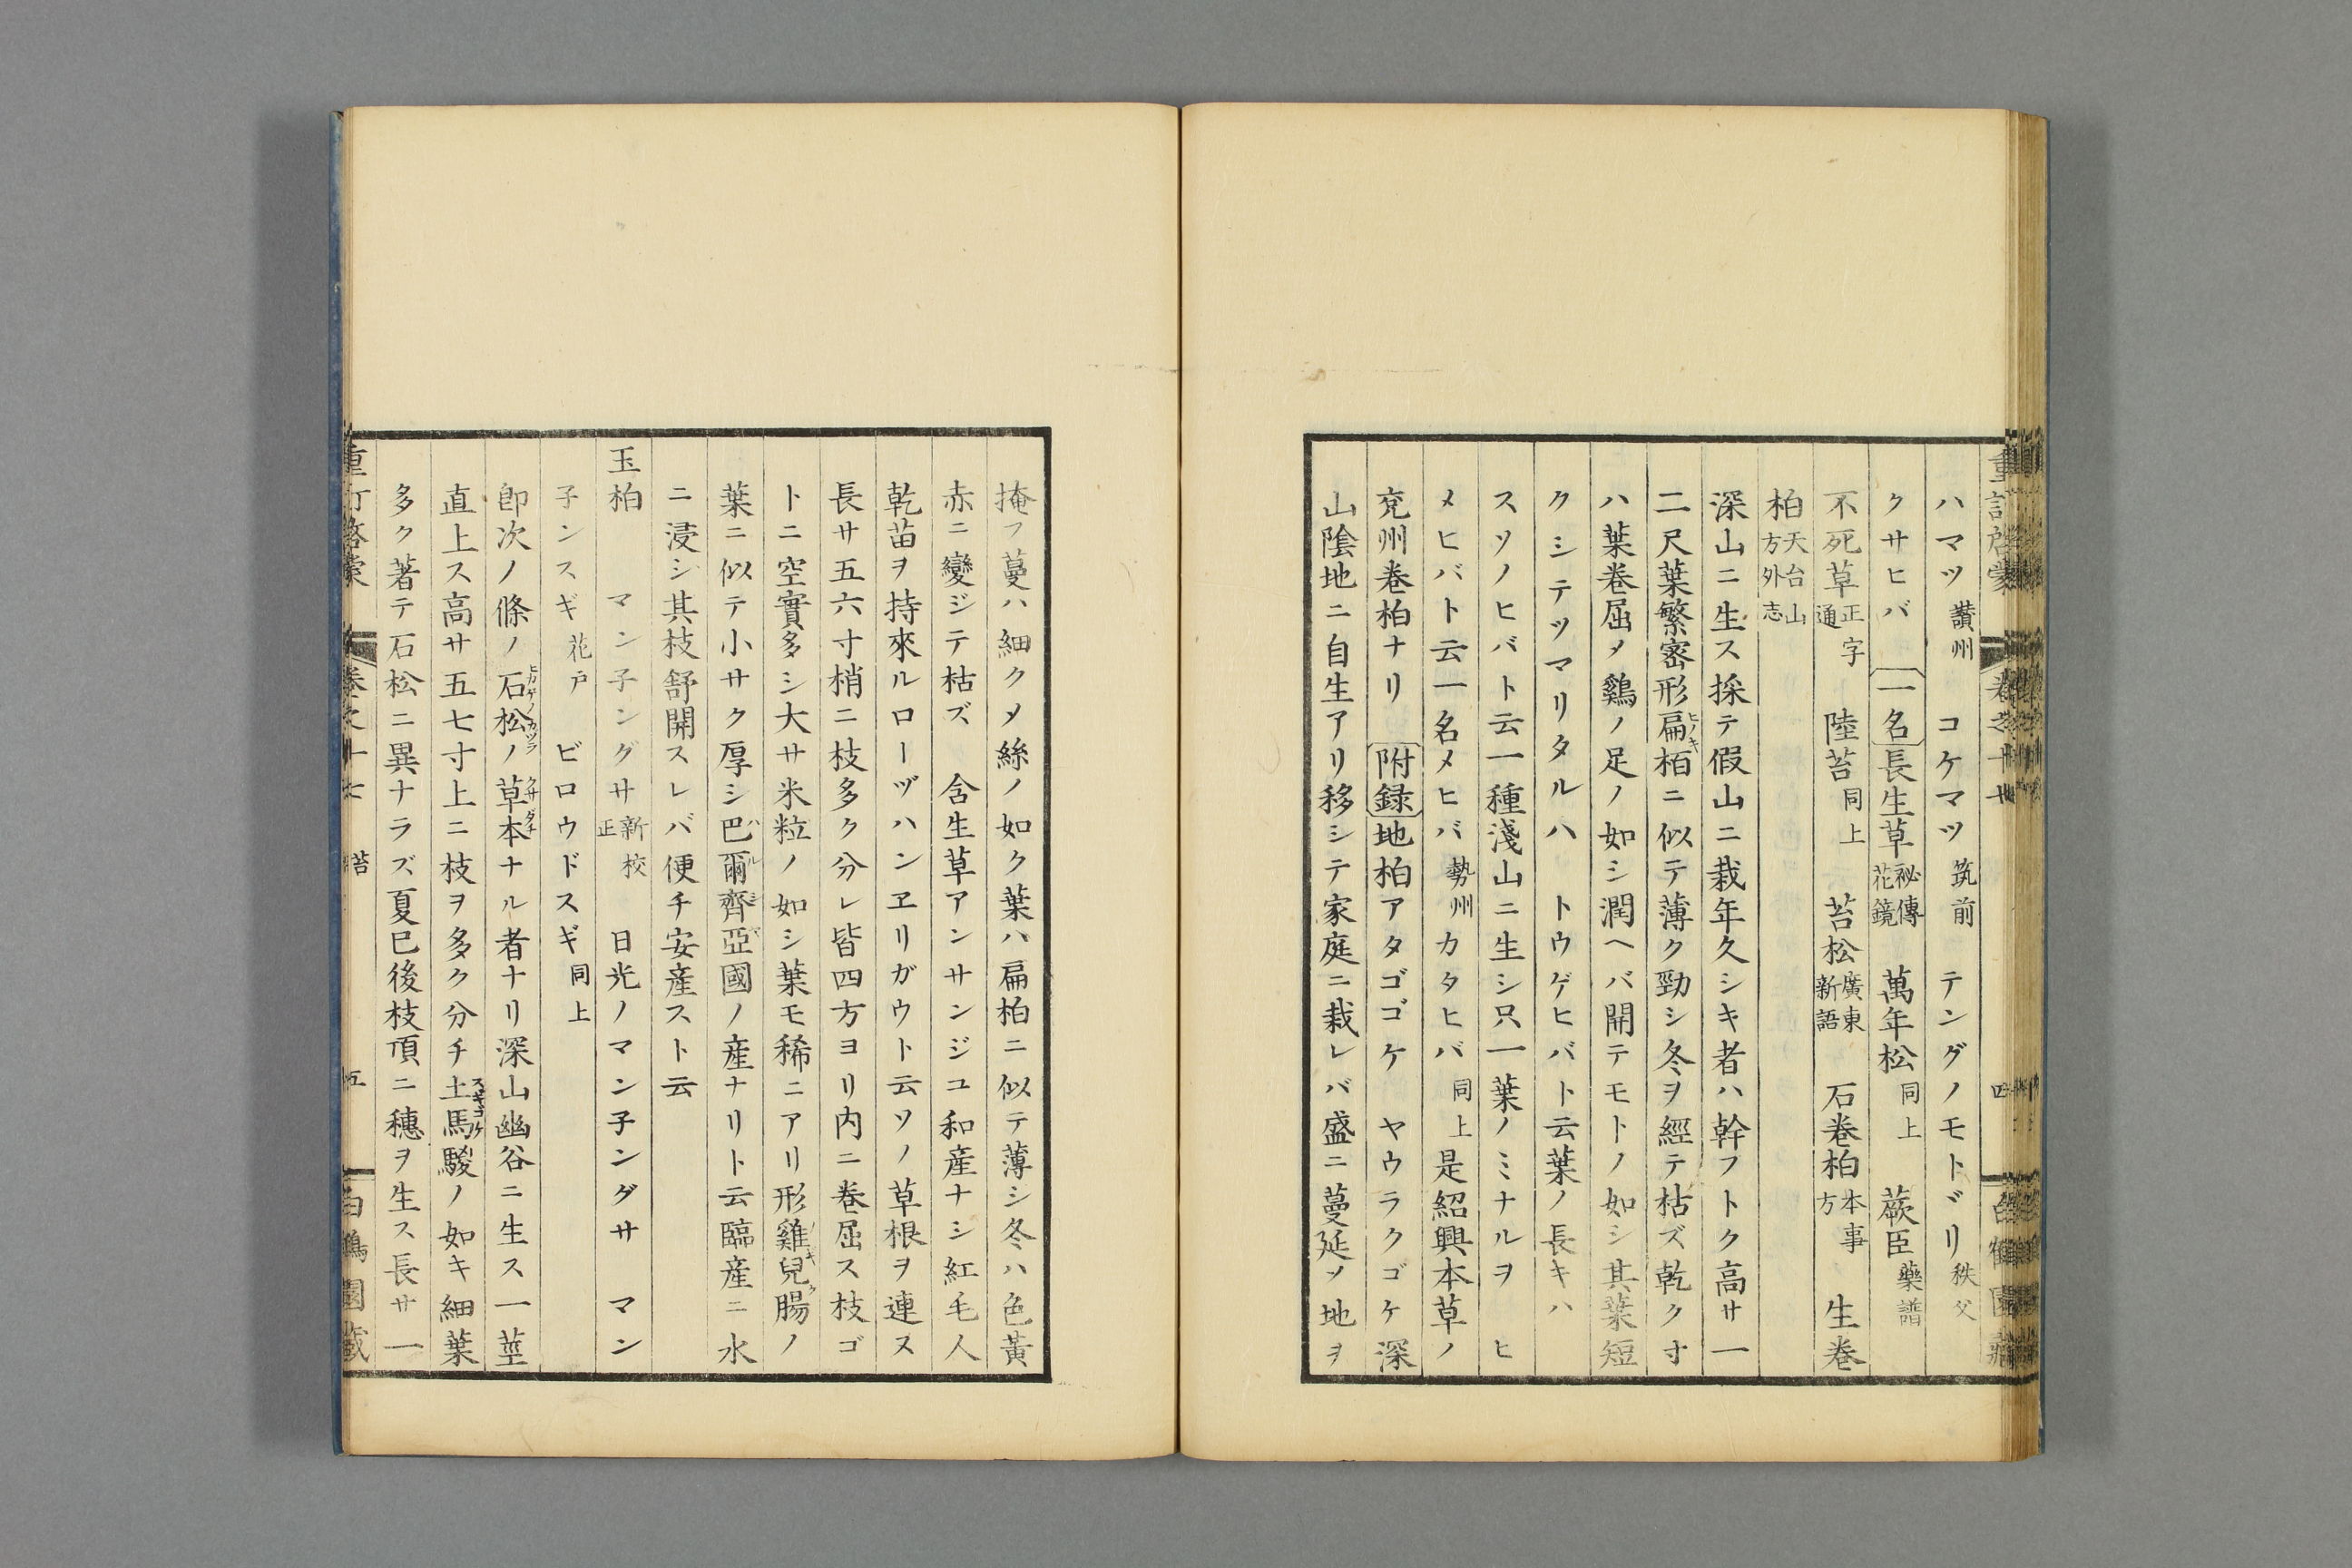 ハマツ讃州　コケマツ筑前　テングノモトヾリ秩父
クサヒバ　一名長生草秘傳花鏡　萬年松同上　蕨臣藥譜
不死草正字通　陸苔同上　苔松廣東新語　石巻柏本事方　生巻
柏天台山方外志
深山ニ生ス採テ假山ニ栽年久シキ者ハ幹フトク高サ一
二尺葉繁密形扁栢ヒノキニ似テ薄ク勁シ冬ヲ經テ枯ズ乾ク寸
ハ葉巻屈メ鷄ノ足ノ如シ潤ヘバ開テモトノ如シ其葉短
クシテツマリタルハ　トウゲヒバト云葉ノ長キハ　ヒ
スソノヒバト云一種淺山ニ生シ只一葉ノミナルヲ　ヒ
メヒバト云一名メヒバ勢州カタヒバ同上是紹興本草ノ
兗州巻柏ナリ　附録地柏アタゴゴケ　ヤウラクゴケ深
山陰地ニ自生アリ移シテ家庭ニ栽レバ盛ニ蔓延メ地ヲ
掩フ蔓ハ細クメ絲ノ如ク葉ハ扁柏ニ似テ薄シ冬ハ色黃
赤ニ變ジテ枯ズ　含生草アンサンジユ和産ナシ紅毛人
乾苗ヲ持來ルローヅハンヱリガウト云ソノ草根ヲ連ヌ
長サ五六寸梢ニ枝多ク分レ皆四方ヨリ内ニ巻屈ス枝ゴ
トニ空實多シ大サ米粒ノ如シ葉モ稀ニアリ形雞兒腸ノ
葉ニ似テ小サク厚シ巴爾齊亞ハルシヤ國ノ産ナリト云臨産ニ水
ニ浸シ其枝舒開スレバ便チ安産スト云
玉柏　マン子ングサ新校正　日光ノマン子ングサ　マン
子ンスギ花戸　ビロウドスギ同上
卽次ノ條ノ石松ヒカゲノカツラノ草本クサダチナル者ナリ深山幽谷ニ生ス一莖
直上ス高サ五七寸上ニ枝ヲ多ク分チ土馬騣スギゴケノ如キ細葉
多ク著テ石松ニ異ナラズ夏已後枝頂ニ穗ヲ生ス長サ一
巻之十七　苔　五